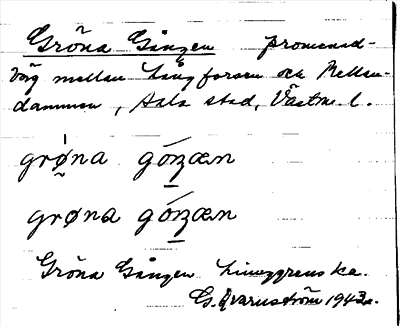 Gröna Gången promenad-
väg mellan Långforsen och Mellan-
dammen, Sala stad, Västm. l.
grøna góŋæn
grøna góŋæn
Gröna Gången
G. Qvarnström 1943.